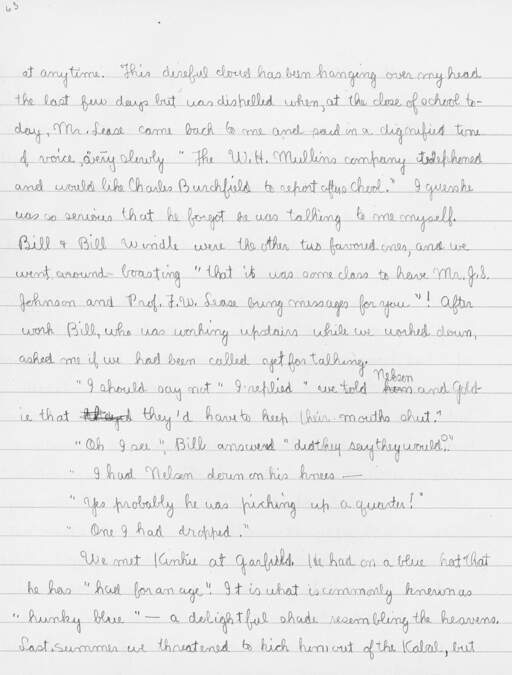 63
at anytime. This direful cloud has been hanging over my head
the last few days but was dispelled when, at the close of school to-
day, Mr. Lease came back to me and said in a dignified tone
of voice, very slowly "The W.H. Mullins company telephoned
and would like Charles Burchfield to report after school." I guess he
was so serious that he forgot he was talking to me myself.
Bill & Bill Windle were the other two favored ones, and we
went around boasting "that it was some class to have Mr. J.S.
Johnson and Prof. F.W. Lease bring messages for you"! After
work Bill, who was working upstairs while we worked down,
asked me if we had been called yet for talking.
"I should say not" I replied "we told Nelsen and Gold-
ie that they'd have to keep their mouths shut."
"Oh I see", Bill answered "did they say they would?"
" I had Nelsen down on his knees —
"Yes probably he was picking up a quarter!"
" One I had dropped."
We met Kinkie at Garfield. He had on a blue hat that
he has "had for an age". It is what is commonly known as
"hunky blue" — a delightful shade resembling the heavens.
Last summer we threatened to kick him out of the Kabal, but